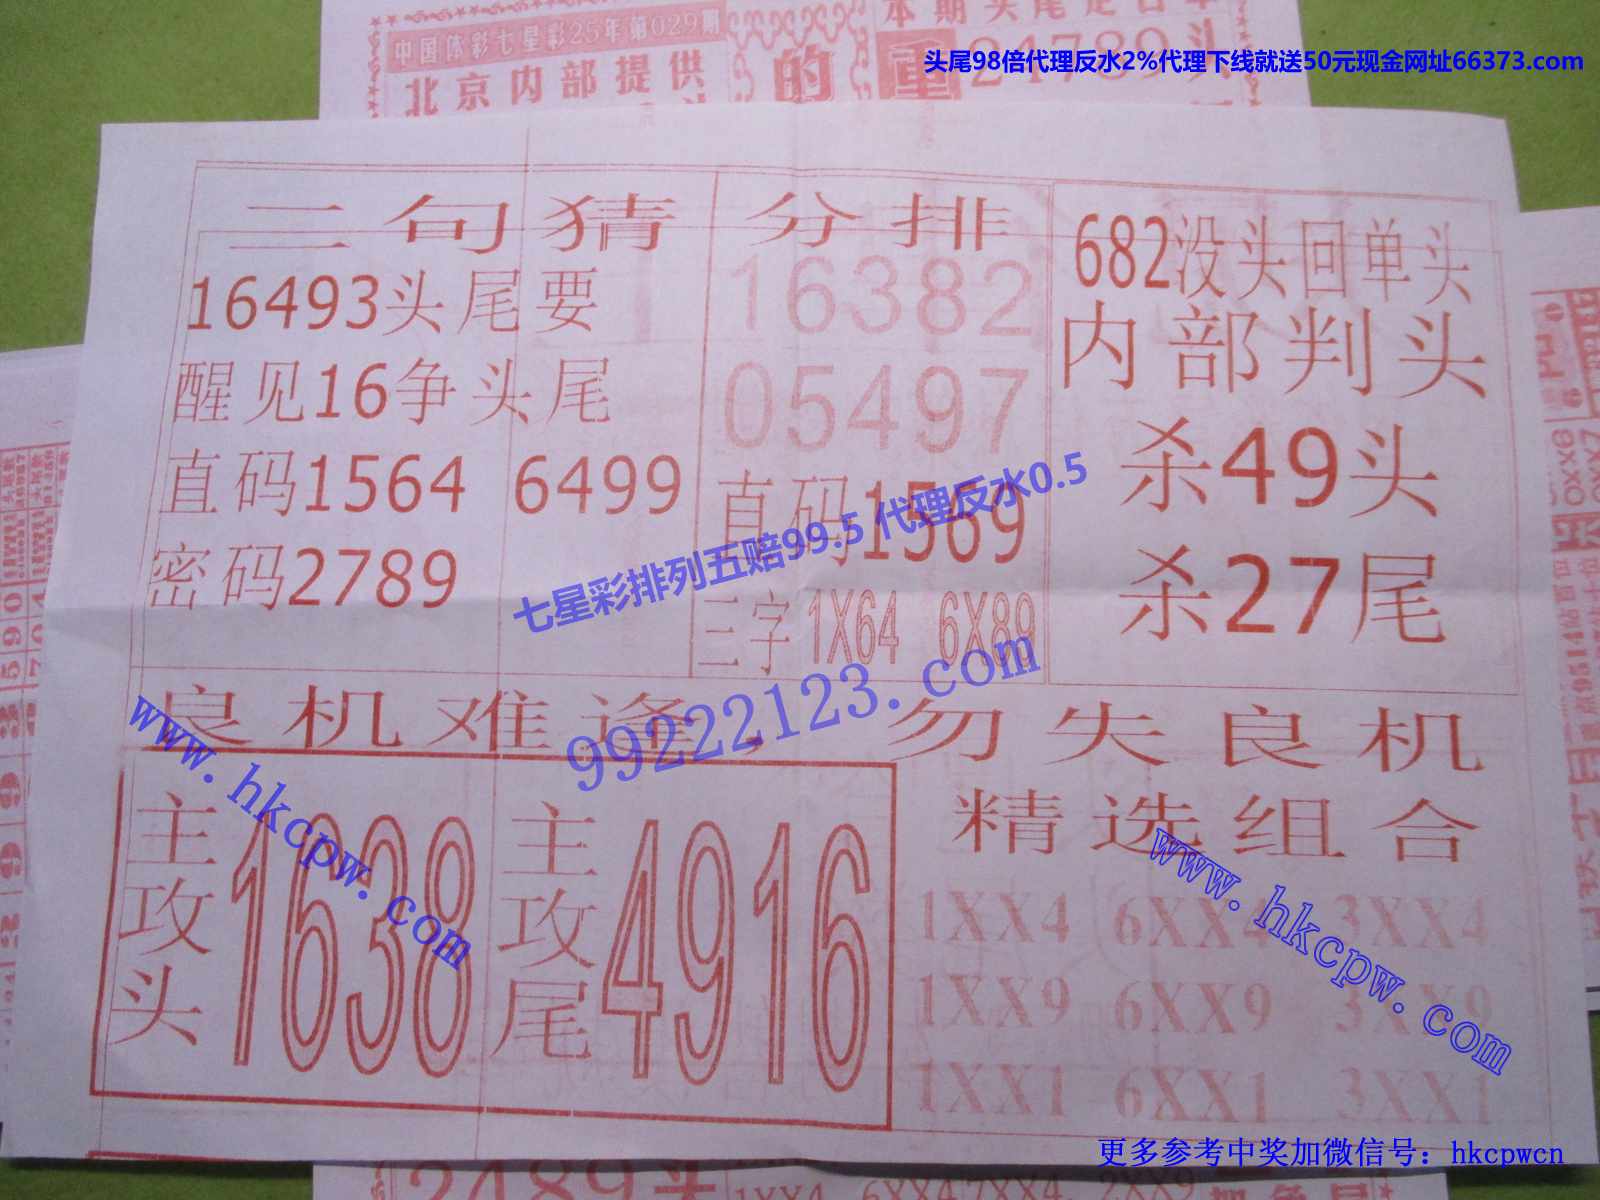 中国体彩七星彩25年第029期
北京内部提供
的
头尾98倍代理反水2%代理下线就送50元现金网址66373.com
24789头
二句猜
16493头尾要
醒见16争头尾
直码1564 6499
密码2789
分排
16382
05497
直码1569
三字 1X64 6X89
682没头回单头
内部判头
杀49头
杀27尾
七星彩排列五赔99.5 代理反水0.5
99222123.com
良机难逢，勿失良机
www.hkcpw.com
主攻头1638
主攻尾4916
精选组合
www.hkcpw.com
1XX4 6XX4 3XX4
1XX9 6XX9 3XX9
1XX1 6XX1 3XX1
更多参考中奖加微信号：hkcpwcn
2489头